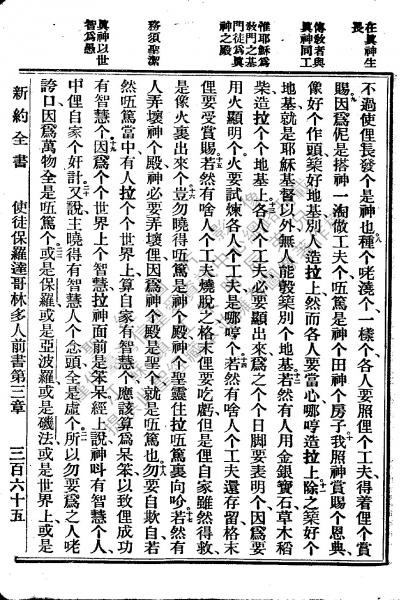 在眞神生長
傳教者與眞神同工
惟耶穌爲教門之基
門徒爲眞神之殿
務須聖潔
眞神以世智爲愚
不過使俚長發个是神也種个咾澆个一樣个各人要照俚个工夫得着俚个賞
賜因爲伲是搭神一淘做工夫个㕶篤是神个田神个房子我照神賞賜个恩典
像好个作頭築好地基別人造拉上然而各人要當心哪哼造拉上除之築好个
地基就是耶穌基督以外無人能彀築別个地基若然有人用金銀寶石草木稻
柴造拉个个地基上各人个工夫必要顯出來爲之个个日脚要表明个因爲要
用火顯明个火要試煉各人个工夫是哪哼个若然有啥人个工夫還存留格末
俚要受賞賜若然有啥人个工夫燒脫之格末俚要吃虧但是俚自家雖然得救
是像火裏出來个豈勿曉得㕶篤是神个殿神个聖靈住拉㕶篤裏向吤若然有
人弄壞神个殿神必要弄壞俚因爲神个殿是聖个就是㕶篤也勿要自欺自若
然㕶篤當中有人拉个个世界上算自家有智慧个應該算爲呆笨以致俚成功
有智慧个因爲个个世界上个智慧拉神面前是呆笨經上說神呌有智慧个人
中俚自家个奸計又說主曉得有智慧人个念頭全是虛个所以勿要爲之人咾
誇口因爲萬物全是㕶篤个或是保羅或是亞波羅或是磯法或是世界上或是
新約全書　使徒保羅達哥林多人前書第三章　三百六十五